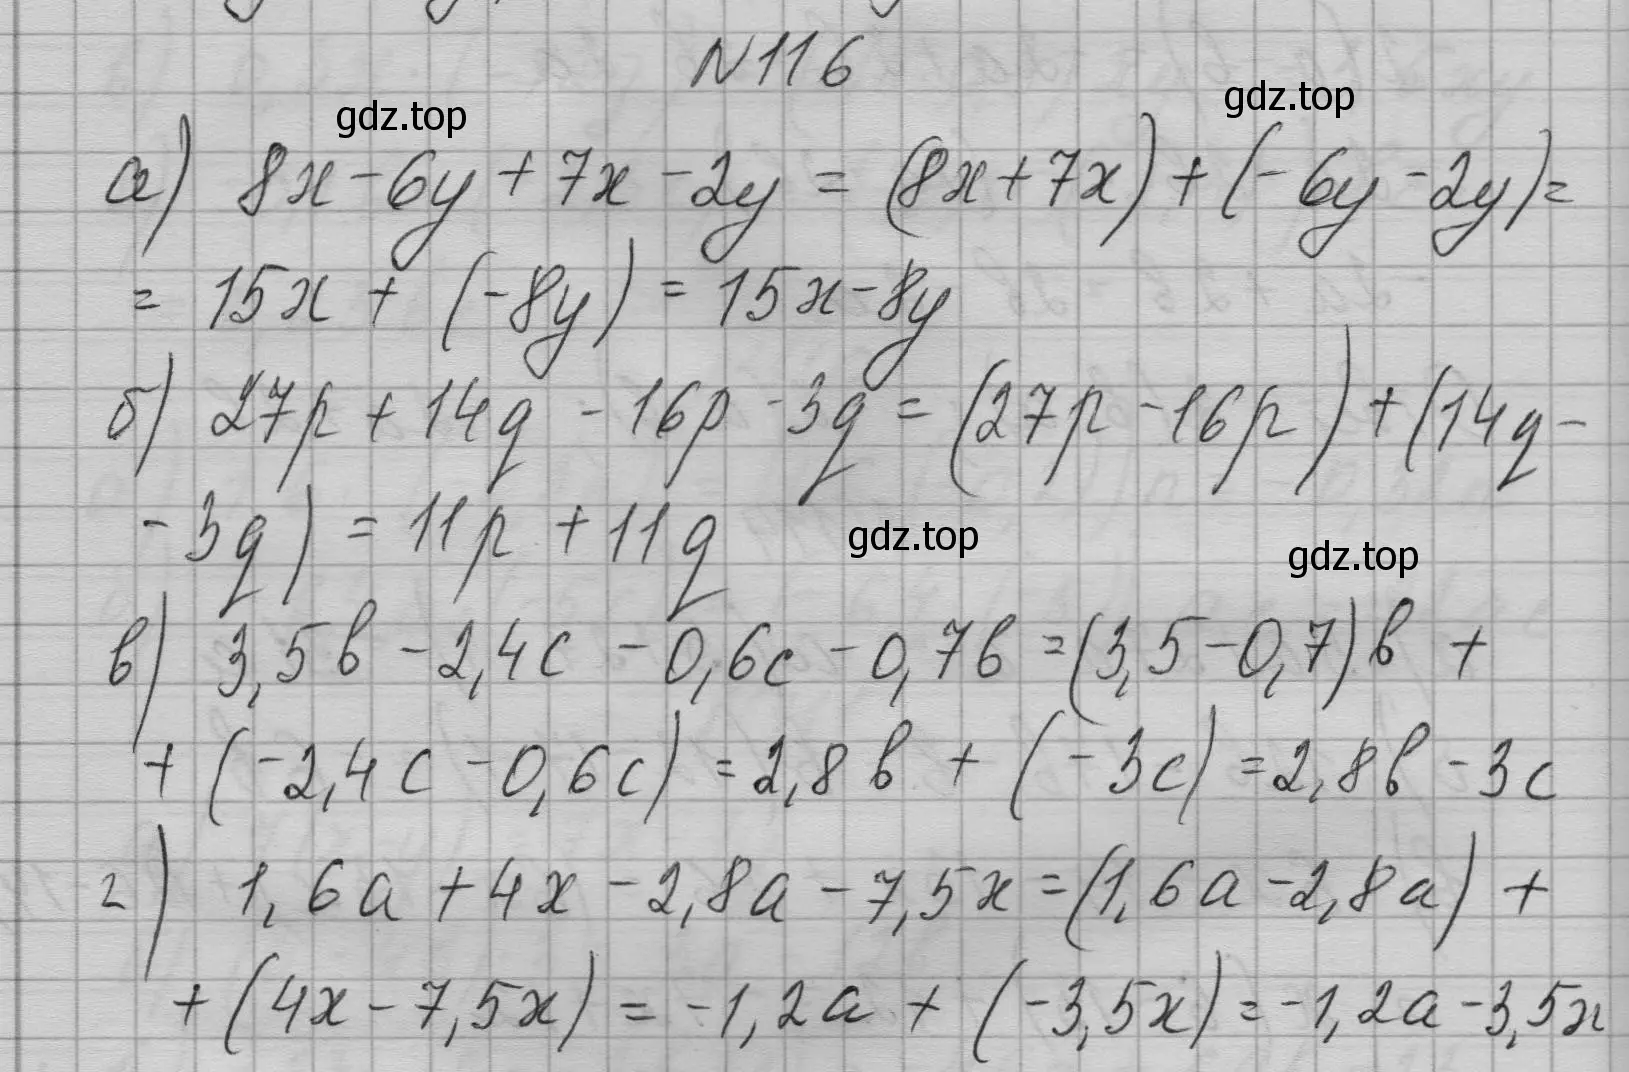 N116
gdz.top
gdz.top
а) 8x - 6y + 7x - 2y = (8x + 7x) + (-6y - 2y) =
= 15x + (-8y) = 15x - 8y
б) 27p + 14q - 16p - 3q = (27p - 16p) + (14q -
- 3q) = 11p + 11q
gdz.top
gdz.top
в) 3,5в - 2,4с - 0,6с - 0,7в = (3,5 - 0,7)в +
+ (-2,4с - 0,6с) = 2,8в + (-3с) = 2,8в - 3с
г) 1,6a + 4x - 2,8a - 7,5x = (1,6a - 2,8a) +
+ (4x - 7,5x) = -1,2a + (-3,5x) = -1,2a - 3,5x